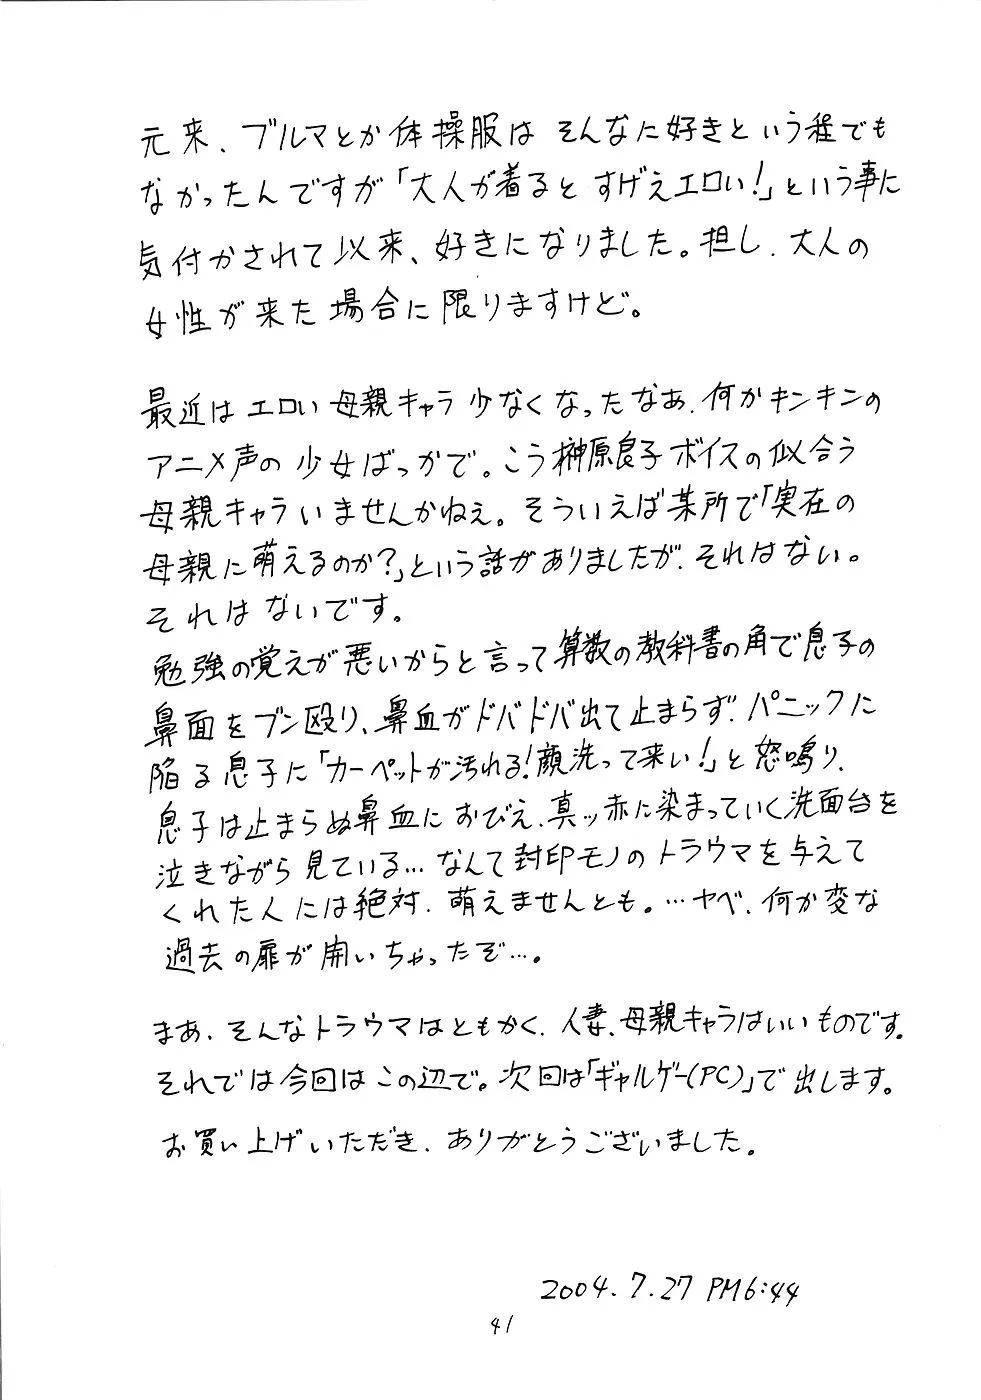 元来、ブルマとか体操服はそんなに好きという程でも
なかったんですが「大人が着るとすげえエロい!」という事に
気付かされて以来、好きになりました。担し、大人の
女性が来た場合に限りますけど。
最近はエロい母親キャラ少なくなったなあ、何かキンキンの
アニメ声の少女ばっかで。こう榊原良子ボイスの似合う
母親キャラいませんかねえ。そういえば某所で「実在の
母親に萌えるのか?」という話がありましたが、それはない。
それはないです。
勉強の覚えが悪いからと言って算数の教科書の角で息子の
鼻面をブン殴り、鼻血がドバドバ出て止まらず、パニックに
陥る息子に「カーペットが汚れる!顔洗って来い!」と怒鳴り、
息子は止まらぬ鼻血におびえ、真ッ赤に染まっていく洗面台を
泣きながら見ている…なんて封印モノのトラウマを与えて
くれた人には絶対、萌えませんとも。…ヤベ、何か変な
過去の扉が開いちゃったぞ…。
まあ、そんなトラウマはともかく、人妻、母親キャラはいいものです。
それでは今回はこの辺で。次回は「ギャルゲー(PC)」で出します。
お買い上げいただき、ありがとうございました。
2004.7.27 PM6:44
41